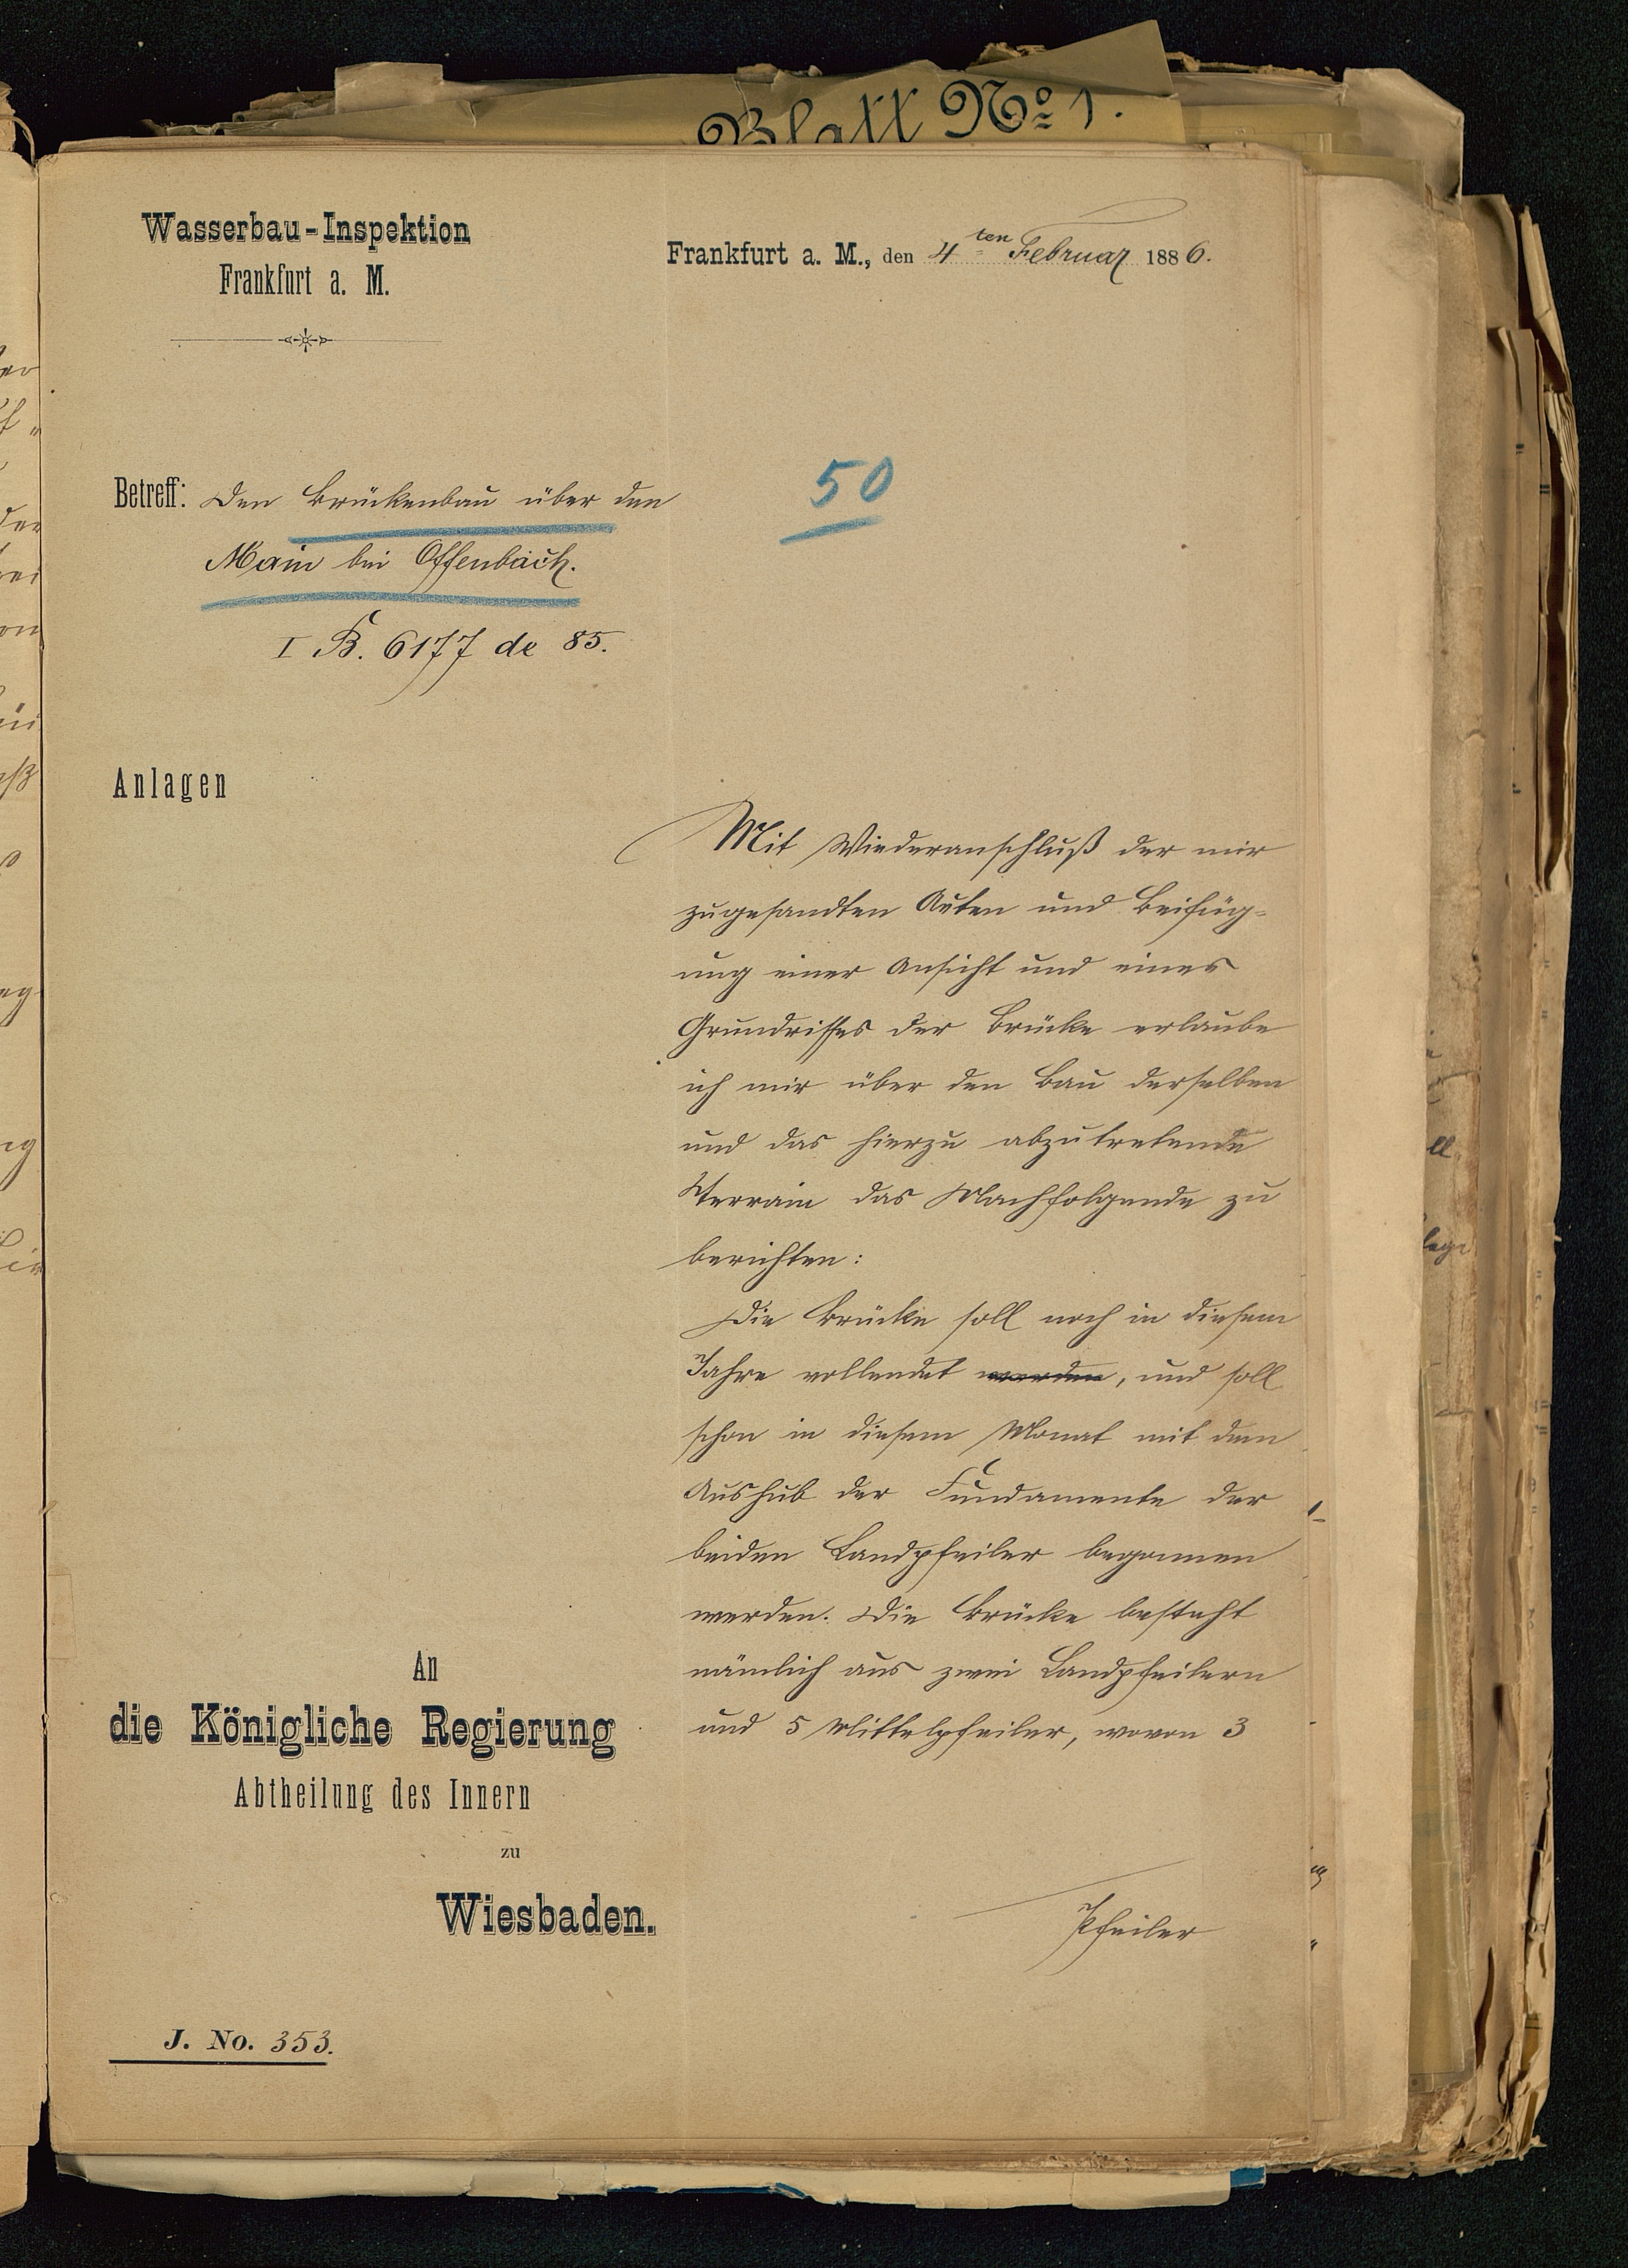 Blatt No 1.
Wasserbau-Inspektion
Frankfurt a. M.
Frankfurt a. M., den 4ten Februar 1886.
50
Betreff: Den Brückenbau über den
Main bei Offenbach.
I B. 6177 de 85.
Anlagen
Mit Wiederanschluß der mir
zugesandten Akten und Beifüg-
ung einer Ansicht und eines
Grundrisses der Brücke erlaube
ich mir über den Bau derselben
und das hierzu abzutretende
Terrain das Nachfolgende zu
berichten:
Die Brücke soll noch in diesem
Jahre vollendet werden, und soll
schon in diesem Monat mit dem
Aushub der Fundamente der
beiden Landpfeiler begonnen
werden. Die Brücke besteht
nämlich aus zwei Landpfeilern
und 5 Mittelpfeiler, wovon 3
Pfeiler
An
die Königliche Regierung
Abtheilung des Innern
zu
Wiesbaden.
J. No. 353.